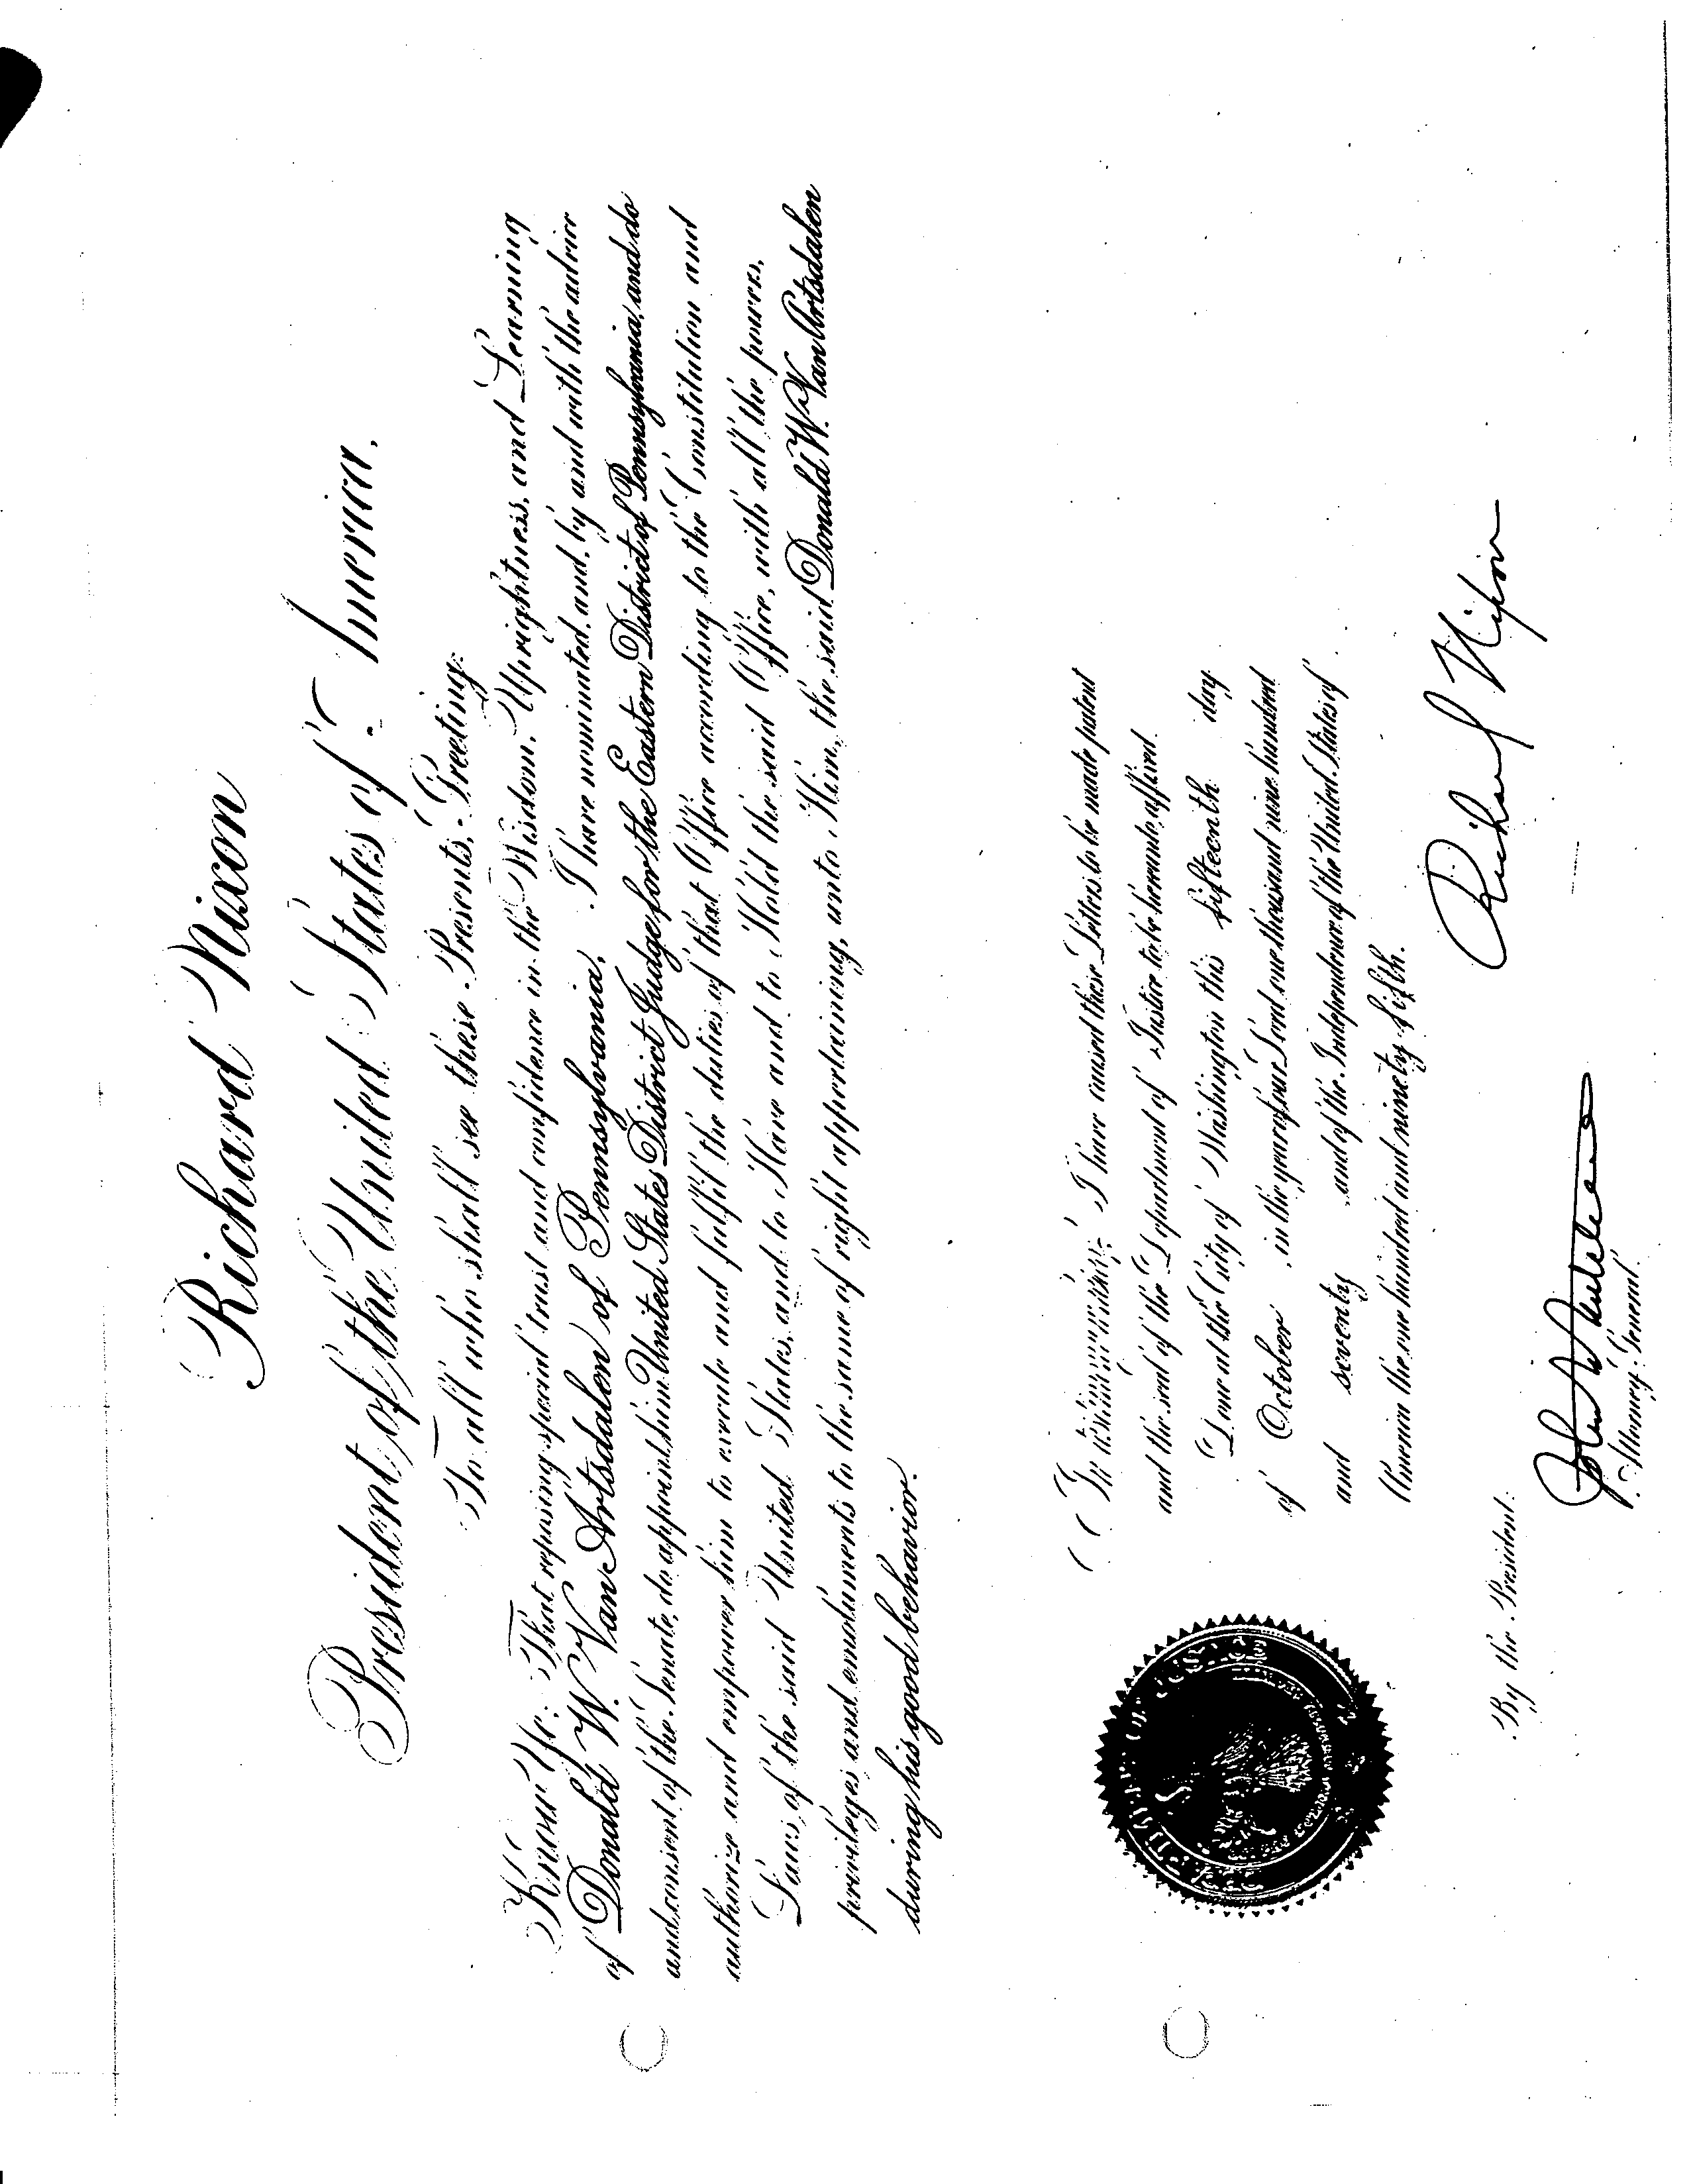 Richard Nixon
President of the United States of America.
To all who shall see these Presents, Greeting:
Know Ye; That reposing special trust and confidence in the Wisdom, Uprightness, and Learning
of Donald W. Van Artsdalen of Pennsylvania, I have nominated, and, by and with the advice
and consent of the Senate, do appoint him United States District Judge for the Eastern District of Pennsylvania, and do
authorize and empower him to execute and fulfil the duties of that Office according to the Constitution and
Laws of the said United States, and to Have and to Hold the said Office, with all the powers,
privileges and emoluments to the same of right appertaining, unto Him, the said Donald W. Van Artsdalen
during his good behavior.
In testimony whereof, I have caused these Letters to be made patent
and the seal of the Department of Justice to be hereunto affixed.
Done at the City of Washington this fifteenth day
of October in the year of our Lord one thousand nine hundred
and seventy and of the Independence of the United States of
America the one hundred and ninety fifth.
Richard Nixon
By the President:
Attorney General.